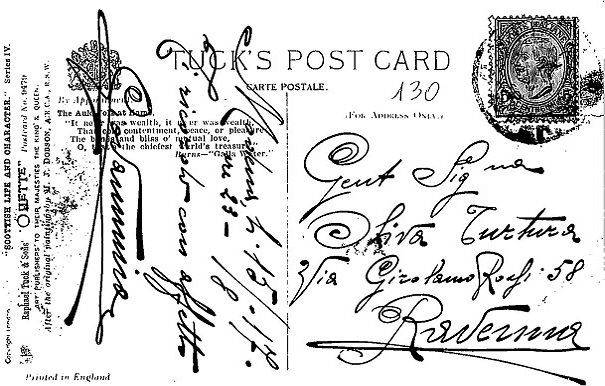 TUCK'S POST CARD
CARTE POSTALE.
130
(FOR ADDRESS ONLY.)
By Appointment
The Auld Fo'k at Hame.
"It ne'er was wealth, it ne'er was wealth,
That coft contentment, peace, or pleasure,
The bands and bliss o' mutual love,
O, that's the chiefest world's treasure."
Burns—"Galla Water."
"SCOTTISH LIFE AND CHARACTER." Series IV.
Raphael Tuck & Sons' "OILETTE" Postcard No. 9479
ART PUBLISHERS TO THEIR MAJESTIES THE KING & QUEEN.
After the original painting by H. J. DOBSON, A.R.C.A., R.S.W.
Printed in England
15/17.
ore 23 - 18
con affetto
Gent Sig na
Oliva Turtura
Via Girolamo Rossi 58
Ravenna